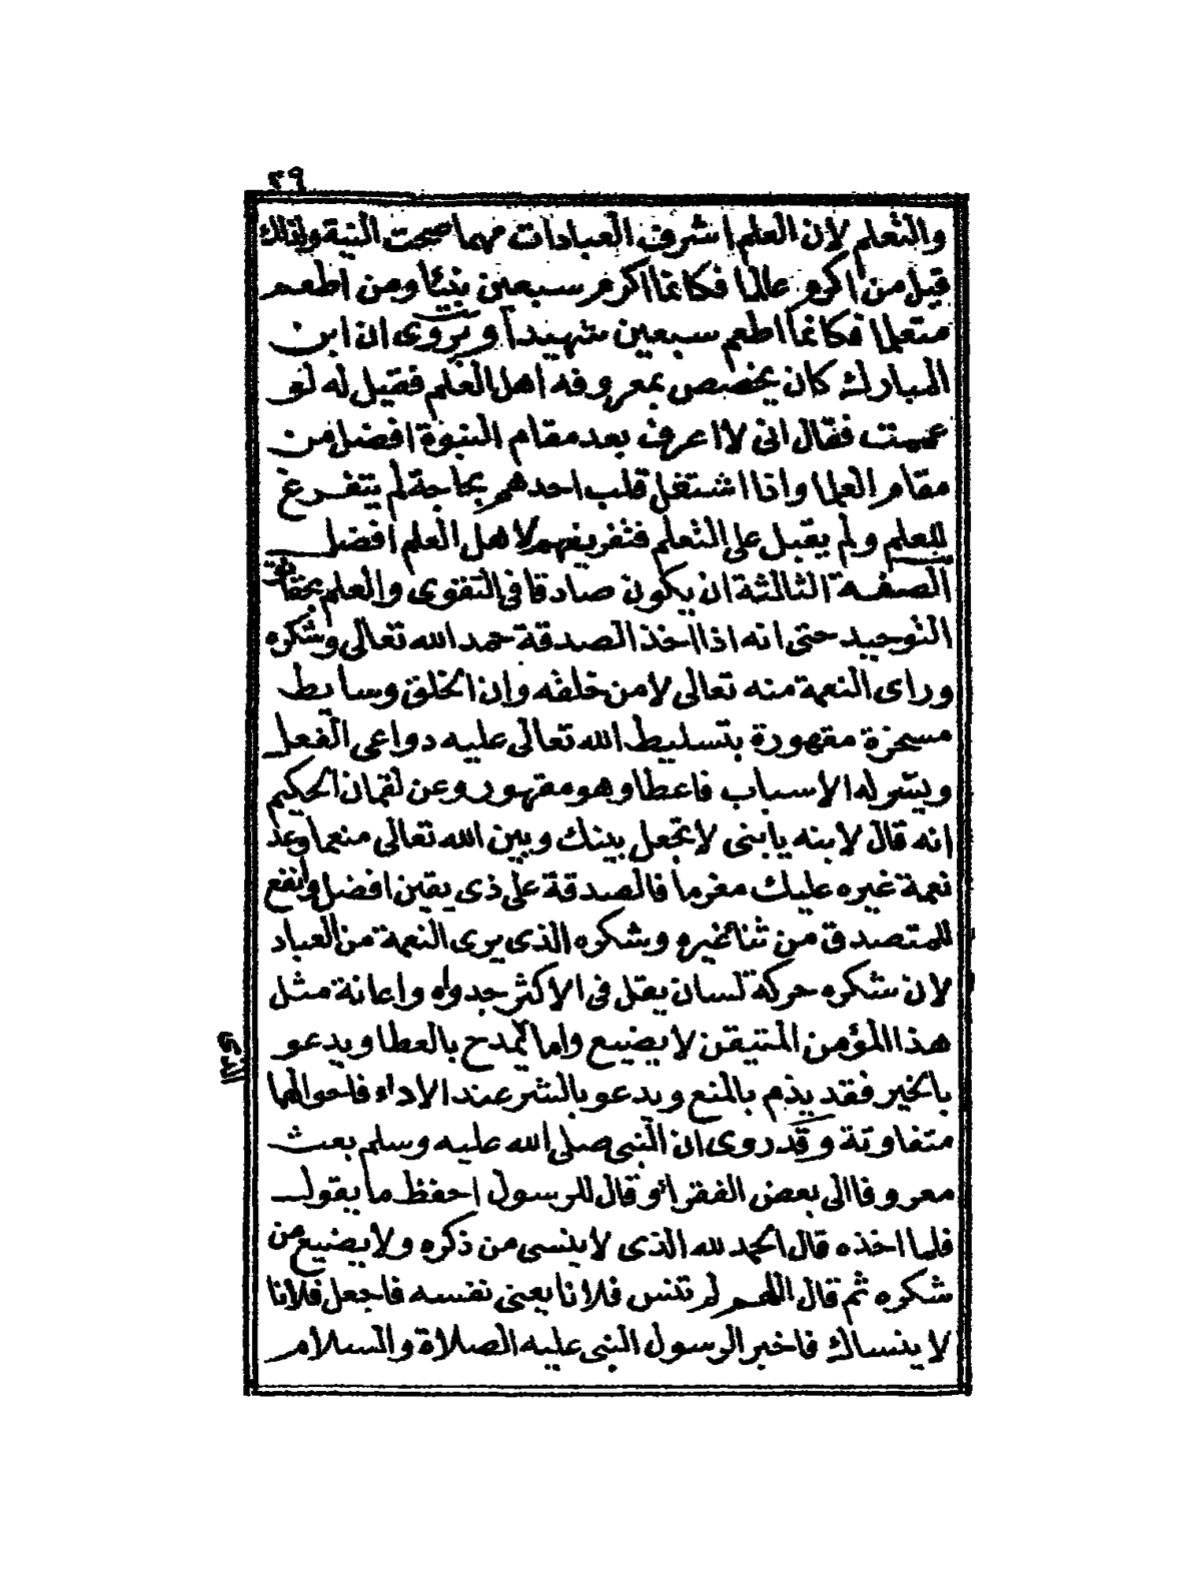 ٢٩
والتعلم لان العلم اشرف العبادات مهما صحت النية ولذلك
قيل من اكرم عالما فكانما اكرم سبعين نبيئا ومن اطعم
متعلما فكانما اطعم سبعين شهيدا ويروى ان ابن
المبارك كان يخصص بمعروفه اهل العلم فقيل له لو
عممت فقال انى لا اعرف بعد مقام النبوة افضل من
مقام العلما واذا اشتغل قلب احدهم بحاجة لم يتفرغ
للعلم ولم يقبل على التعلم فتفريغهم لاهل العلم افضل
الصفة الثالثة ان يكون صادقا فى التقوى والعلم بحقايق
التوحيد حتى انه اذا اخذ الصدقة حمد الله تعالى وشكره
وراى النعمة منه تعالى لا من خلقه وان الخلق وسايط
مسخرة مقهورة بتسليط الله تعالى عليه دواعى الفعل
ويسر له الاسباب فاعطا وهو مقهور وعن لقمان الحكيم
انه قال لابنه يا بنى لا تجعل بينك وبين الله تعالى منعما وعد
نعمة غيره عليك مغرما فالصدقة على ذى يقين افضل وانفع
للمتصدق من ثنا غيره وشكره الذى يرى النعمة من العباد
لان شكره حركة لسان يقل فى الاكثر جدواه واعانة مثل
هذا المؤمن المتيقن لا يضيع واما يمدح بالعطا ويدعو
الذى
بالخير فقد يذم بالمنع ويدعو بالشر عند الاداء فاحوالهما
متفاوتة وقد روى ان النبى صلى الله عليه وسلم بعث
معروفا الى بعض الفقرا وقال للرسول احفظ ما يقول
فلما اخذه قال الحمد لله الذى لا ينسى من ذكره ولا يضيع من
شكره ثم قال اللهم لم تنس فلانا يعنى نفسه فاجعل فلانا
لا ينساك فاخبر الرسول النبى عليه الصلاة والسلام